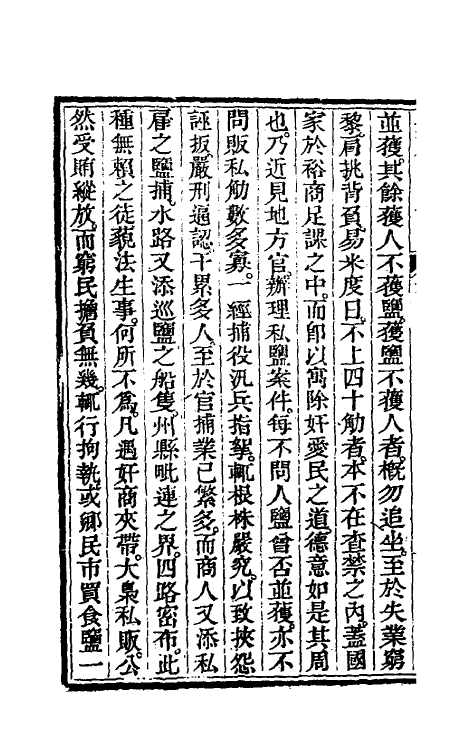 並獲其餘獲人不獲鹽獲鹽不獲人者槪勿追坐至於失業窮
黎肩挑背負易米度日不上四十觔者本不在查禁之內蓋國
家於裕商足課之中而卽以寓除奸愛民之道德意如是其周
也乃近見地方官辦理私鹽案件每不問人鹽曾否並獲亦不
問販私觔數多寡一經捕役汛兵指拏輒根株嚴究以致挾怨
誣扳嚴刑逼認干累多人至於官捕業已繁多而商人又添私
雇之鹽捕水路又添巡鹽之船隻州縣毗連之界四路密布此
種無賴之徒藐法生事何所不爲凡遇奸商夾帶大梟私販公
然受賄縱放而窮民擔負無幾輒行拘執或鄉民市買食鹽一